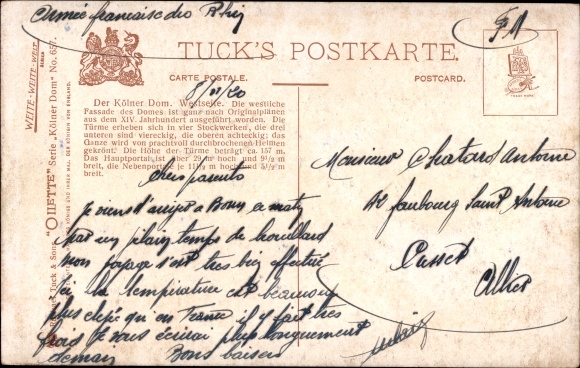 Armée française du Rhin
F M
TUCK'S POSTKARTE.
CARTE POSTALE.
POSTCARD.
8/11/20
Der Kölner Dom. Westseite. Die westliche
Fassade des Domes ist ganz nach Originalplänen
aus dem XIV. Jahrhundert ausgeführt worden. Die
Türme erheben sich in vier Stockwerken, die drei
unteren sind viereckig, die oberen achteckig; das
Ganze wird von prachtvoll durchbrochenen Helmen
gekrönt. Die Höhe der Türme beträgt ca. 157 m.
Das Hauptportal ist über 29 m hoch und 9½ m
breit, die Nebenportale je 11½ m hoch und 5½ m
breit.
WEITE-WEITE-WELT
"OILETTE" Serie „Kölner Dom" No. 657
Tuck & Sons
TRADE MARK
cher parents
Je viens d'arriver a Bonn ce matin
par un plain temps de brouillard
mon voyage s'est tres bien effectué
ici la température est beaucoup
plus elejé qu'en France il y fait tres
froid Je vous écrirai plus longuement
demain Bons baisers
Monsieur Chatard Antoine
42 faubourg Saint Antoine
Cusset
Allier